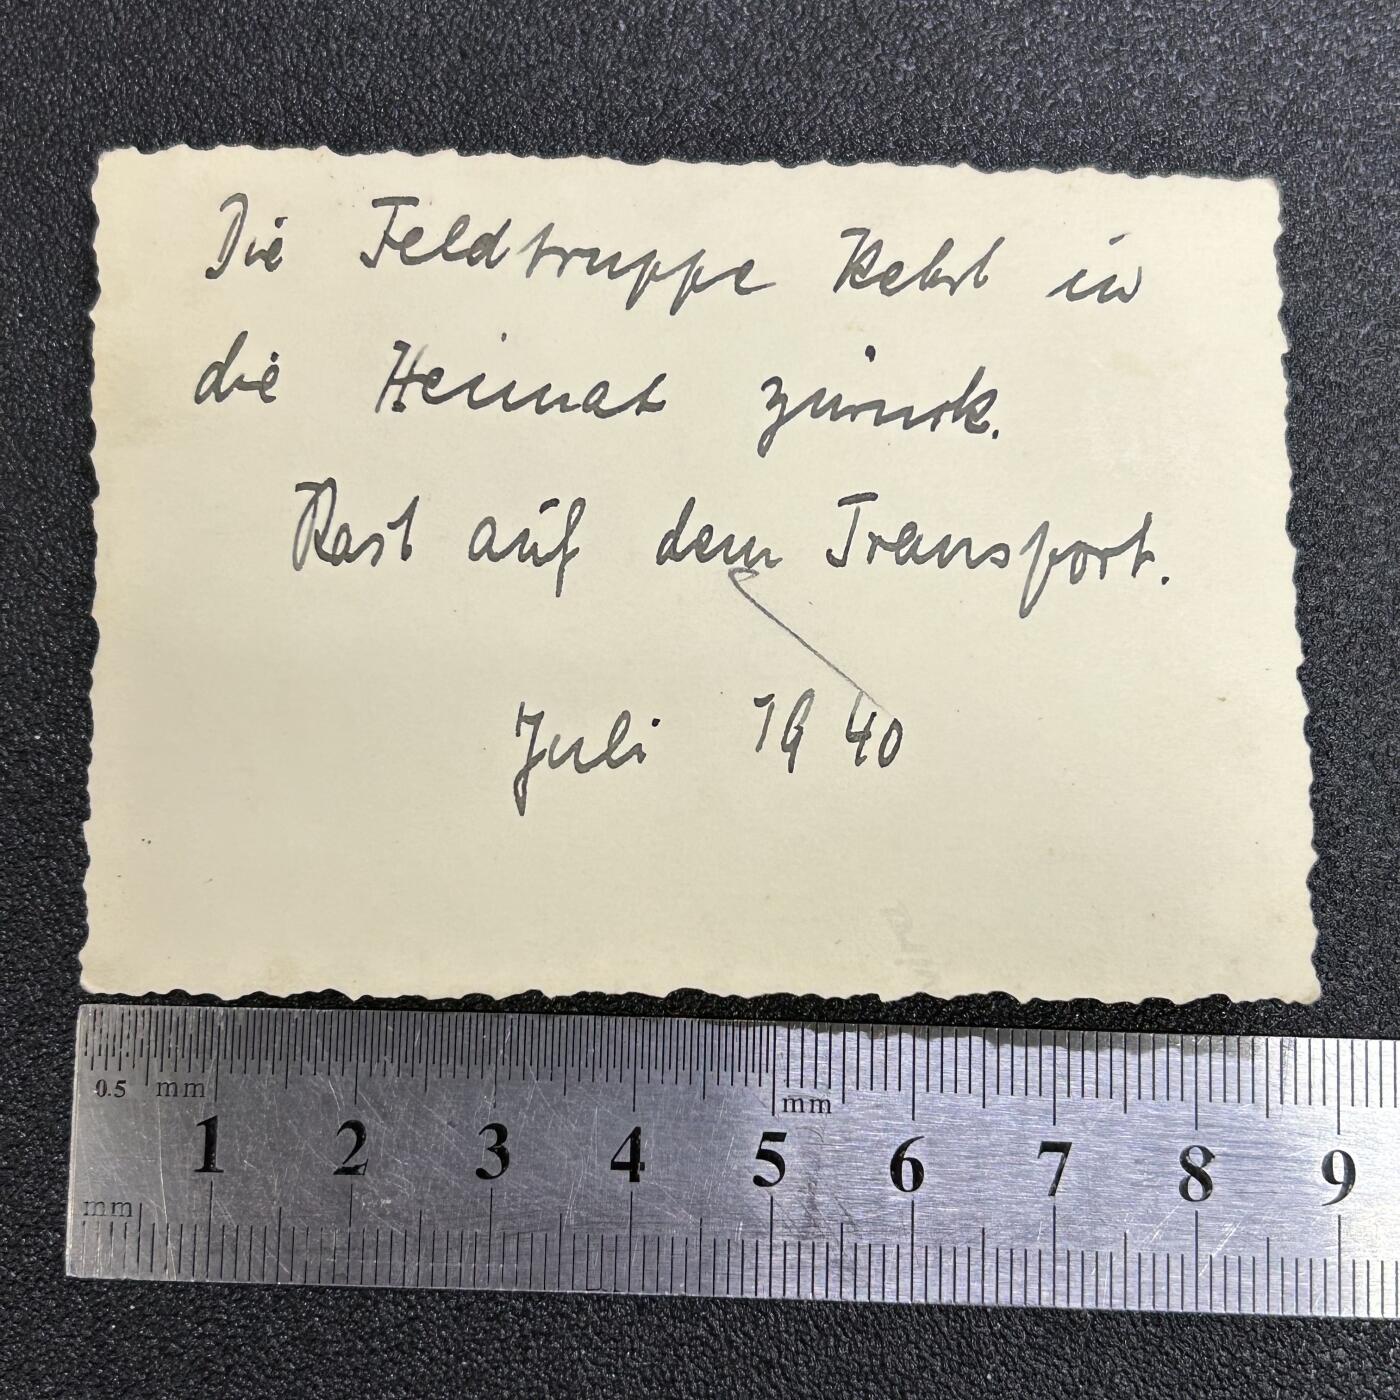 Die Feldtruppe kehrt in
die Heimat zurück.
Rast auf dem Transport.
Juli 1940
0.5 mm
mm
1 2 3 4 5 6 7 8 9
mm